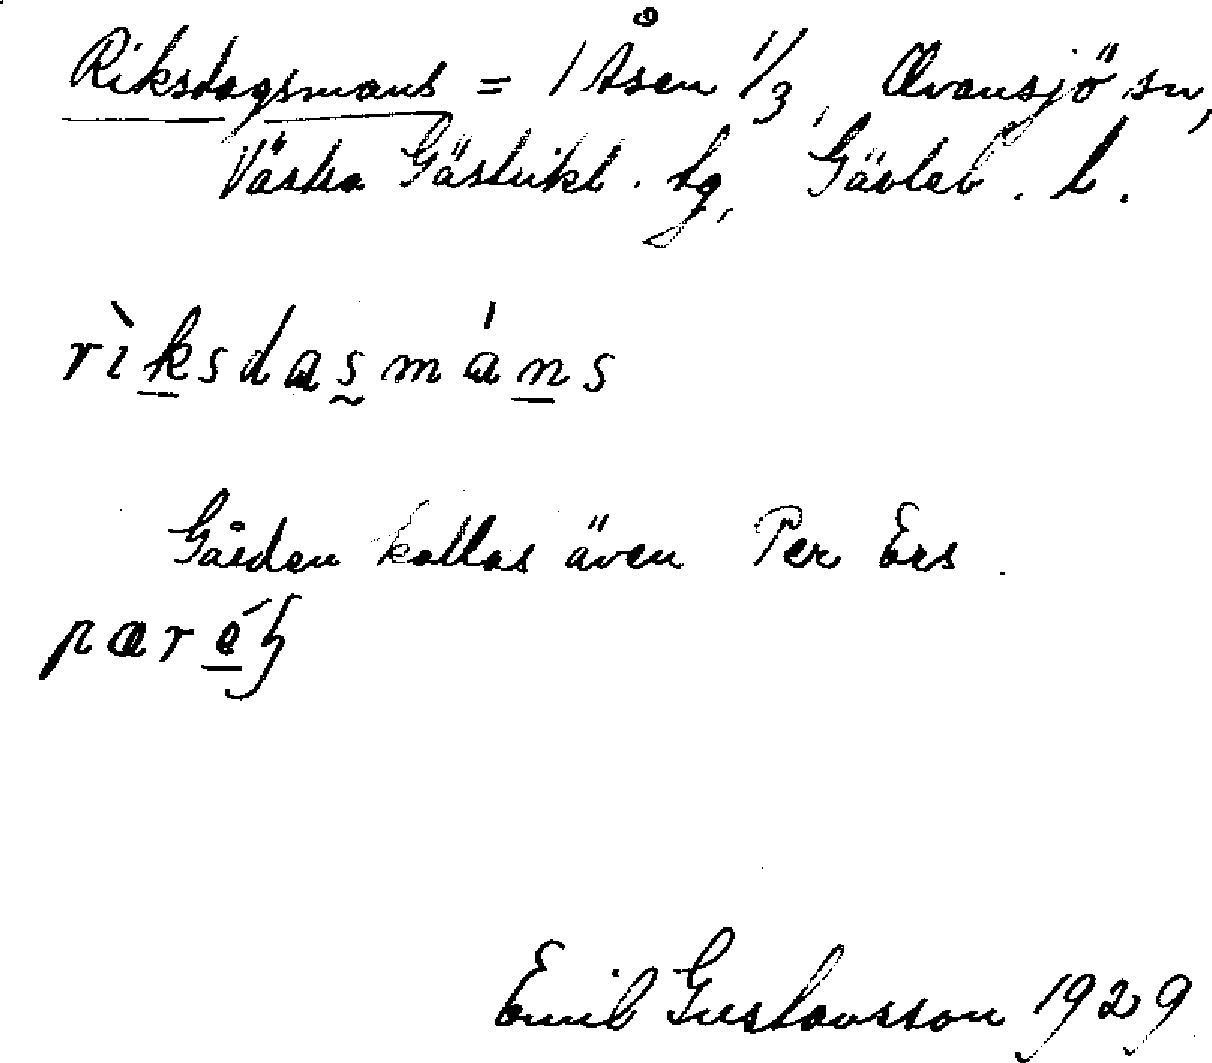 Riksdagsmans = 1 Åsen 1/3, Ovansjö sn,
Västra Gästrikl. tg, Gävleb. l.
rìksdasmáns
Gården kallas även Per Ers.
pærés
Emil Gustavsson 1929